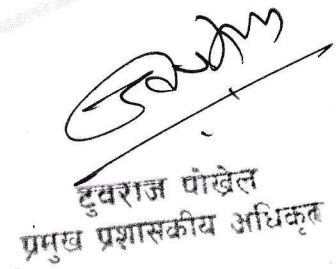 टुवराज पोखेल
प्रमुख प्रशासकीय अधिकृत